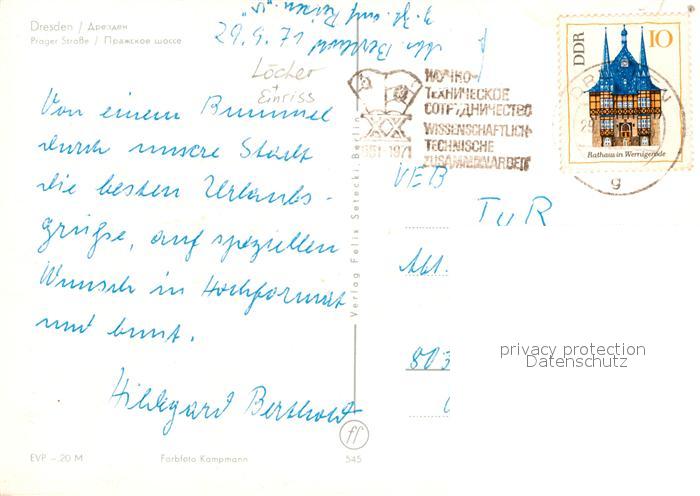 Dresden / Дрезден
Prager Straße / Пражское шоссе
29.4.71
Löcher
+
Einriss
Von einem Bummel
durch unsere Stadt
die besten Urlaubs-
grüße, auf speziellen
Wunsch in Hochformat
und bunt.
Hildegard Berthold
EVP -.20 M
Farbfoto Kampmann
545
ff
Verlag Felix Setecki, Berlin
НАУЧНО-
ТЕХНИЧЕСКОЕ
СОТРУДНИЧЕСТВО
WISSENSCHAFTLICH-
TECHNISCHE
ZUSAMMENARBEIT
XX
1951-1971
DDR
10
Rathaus in Wernigerode
g
VEB
TuR
Abt.
803
privacy protection
Datenschutz